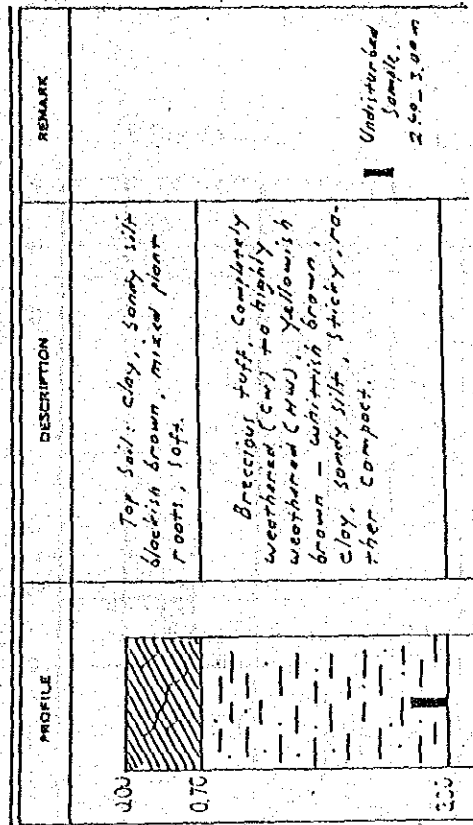 PROFILE
DESCRIPTION
REMARK
0.00
Top Soil: clay, sandy silt
blackish brown, mixed plant
roots, soft.
0.70
Breccious tuff, Completely
weathered (CW) to highly
weathered (HW). Yellowish
brown - whittish brown,
clay, sandy silt, sticky, ra-
ther compact.
Undisturbed
Sample.
2.60 - 3.00 m